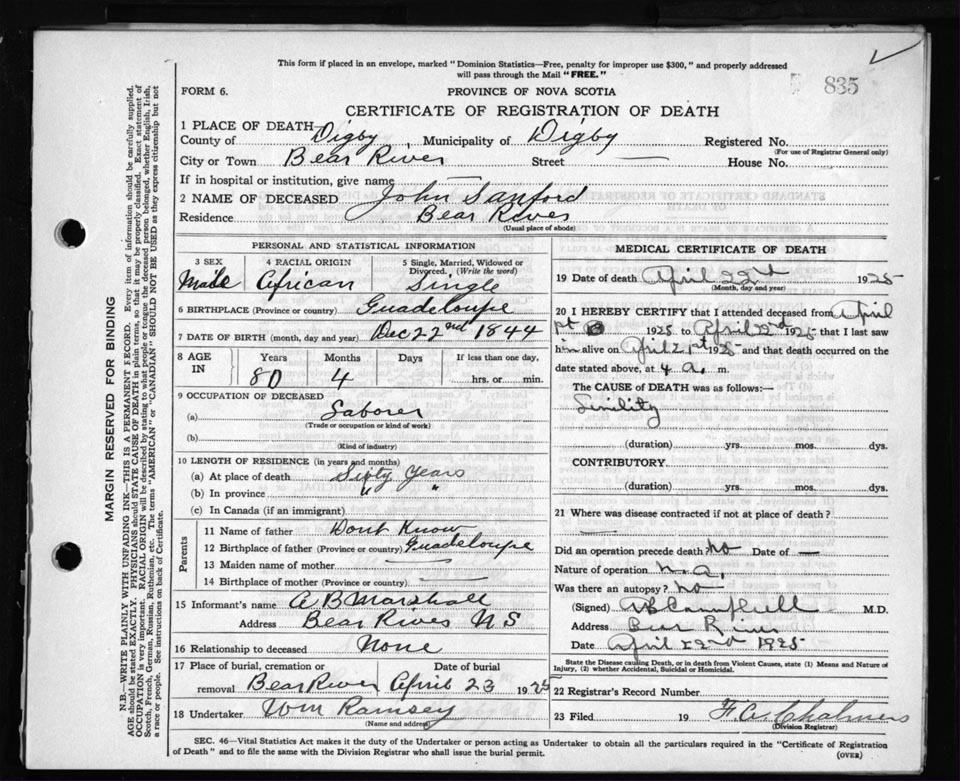 This form if placed in an envelope, marked " Dominion Statistics—Free, penalty for improper use $300," and properly addressed
will pass through the Mail "FREE."
835
FORM 6.
PROVINCE OF NOVA SCOTIA
CERTIFICATE OF REGISTRATION OF DEATH
1 PLACE OF DEATH—
County of Digby, Municipality of Digby Registered No.
(For use of Registrar General only)
City or Town Bear River Street — House No.
If in hospital or institution, give name —
2 NAME OF DECEASED John Sanford
Residence Bear River
(Usual place of abode)
PERSONAL AND STATISTICAL INFORMATION
3 SEX 4 RACIAL ORIGIN 5 Single, Married, Widowed or
Divorced, (Write the word)
Male African Single
6 BIRTHPLACE (Province or country) Guadeloupe
7 DATE OF BIRTH (month, day and year) Dec 22nd 1844
8 AGE IN Years Months Days If less than one day,
80 4 hrs. or min.
9 OCCUPATION OF DECEASED
(a) Laborer
(Trade or occupation or kind of work)
(b)
(Kind of industry)
10 LENGTH OF RESIDENCE (in years and months)
(a) At place of death Sixty Years
(b) In province " "
(c) In Canada (if an immigrant)
Parents
11 Name of father Dont Know
12 Birthplace of father (Province or country) Guadeloupe
13 Maiden name of mother —
14 Birthplace of mother (Province or country) —
15 Informant's name A B Marshall
Address Bear River N S
16 Relationship to deceased None
17 Place of burial, cremation or Date of burial
removal Bear River April 23 1925
18 Undertaker Wm Ramsey
(Name and address)
MEDICAL CERTIFICATE OF DEATH
19 Date of death April 22nd 1925
(Month, day and year)
20 I HEREBY CERTIFY that I attended deceased from April
1925 to April 22nd 1925 that I last saw
him alive on April 21st 1925 and that death occurred on the
date stated above, at 4 a. m.
The CAUSE of DEATH was as follows:—
Senility
(duration) yrs. mos. dys.
CONTRIBUTORY
(duration) yrs. mos. dys.
21 Where was disease contracted if not at place of death?
—
Did an operation precede death? No Date of —
Nature of operation n.a.
Was there an autopsy? No
(Signed) Campbell M.D.
Address Bear River
Date April 22nd 1925
State the Disease causing Death, or in death from Violent Causes, state (1) Means and Nature of
Injury, (2) whether Accidental, Suicidal or Homicidal.
22 Registrar's Record Number
23 Filed 19 F. A. Chalmers
(Division Registrar)
SEC. 46—Vital Statistics Act makes it the duty of the Undertaker or person acting as Undertaker to obtain all the particulars required in the "Certificate of Registration
of Death" and to file the same with the Division Registrar who shall issue the burial permit.
(OVER)
MARGIN RESERVED FOR BINDING
N.B.—WRITE PLAINLY WITH UNFADING INK—THIS IS A PERMANENT RECORD. Every item of information should be carefully supplied.
AGE should be stated EXACTLY. PHYSICIANS should STATE CAUSE OF DEATH in plain terms, so that it may be properly classified. Exact statement of
OCCUPATION is very important. RACIAL ORIGIN will be described by stating to what people or tongue the deceased person belonged, whether English, Irish,
Scotch, French, German, Russian, Ruthenian, etc. The terms "AMERICAN" or "CANADIAN" SHOULD NOT BE USED as they express citizenship but not
a race or people. See instructions on back of Certificate.